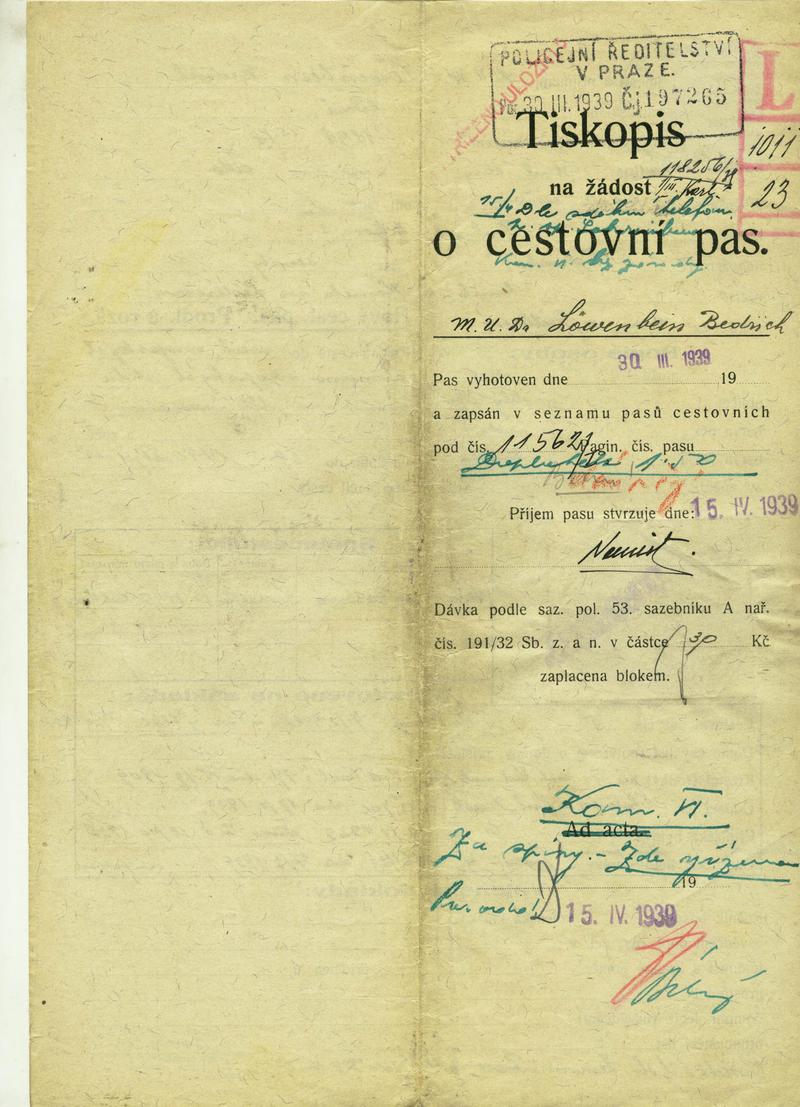 POLICEJNÍ ŘEDITELSTVÍ
V PRAZE.
30 III. 1939 Č.j. 197265
L
1011
23
Tiskopis
118256/39
na žádost
15/4 Dle telefon.
o cestovní pas.
M. U. Dr Löwenbein Bedřich
30 III. 1939
Pas vyhotoven dne 19
a zapsán v seznamu pasů cestovních
pod čís. 11562/ pagin. čís. pasu
Příjem pasu stvrzuje dne: 15. IV. 1939
Dávka podle saz. pol. 53. sazebníku A nař.
čís. 191/32 Sb. z. a n. v částce 30 Kč
zaplacena blokem.
Kom. VI.
Ad acta.
Za spisy. - Zde
19
15. IV. 1939